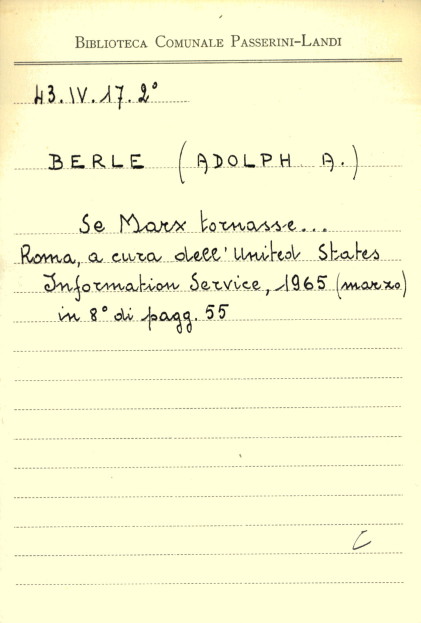 BIBLIOTECA COMUNALE PASSERINI-LANDI
43.IV.17.2°
BERLE (ADOLPH A.)
Se Marx tornasse...
Roma, a cura dell'United States
Information Service, 1965 (marzo)
in 8° di pagg. 55
C